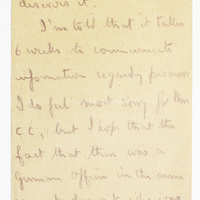 discover it.
I'm told that it takes
6 weeks to communicate
information regarding prisoners
I do feel most sorry for Mrs
C C, but I hope that the
fact that there was a
German Officer in the same